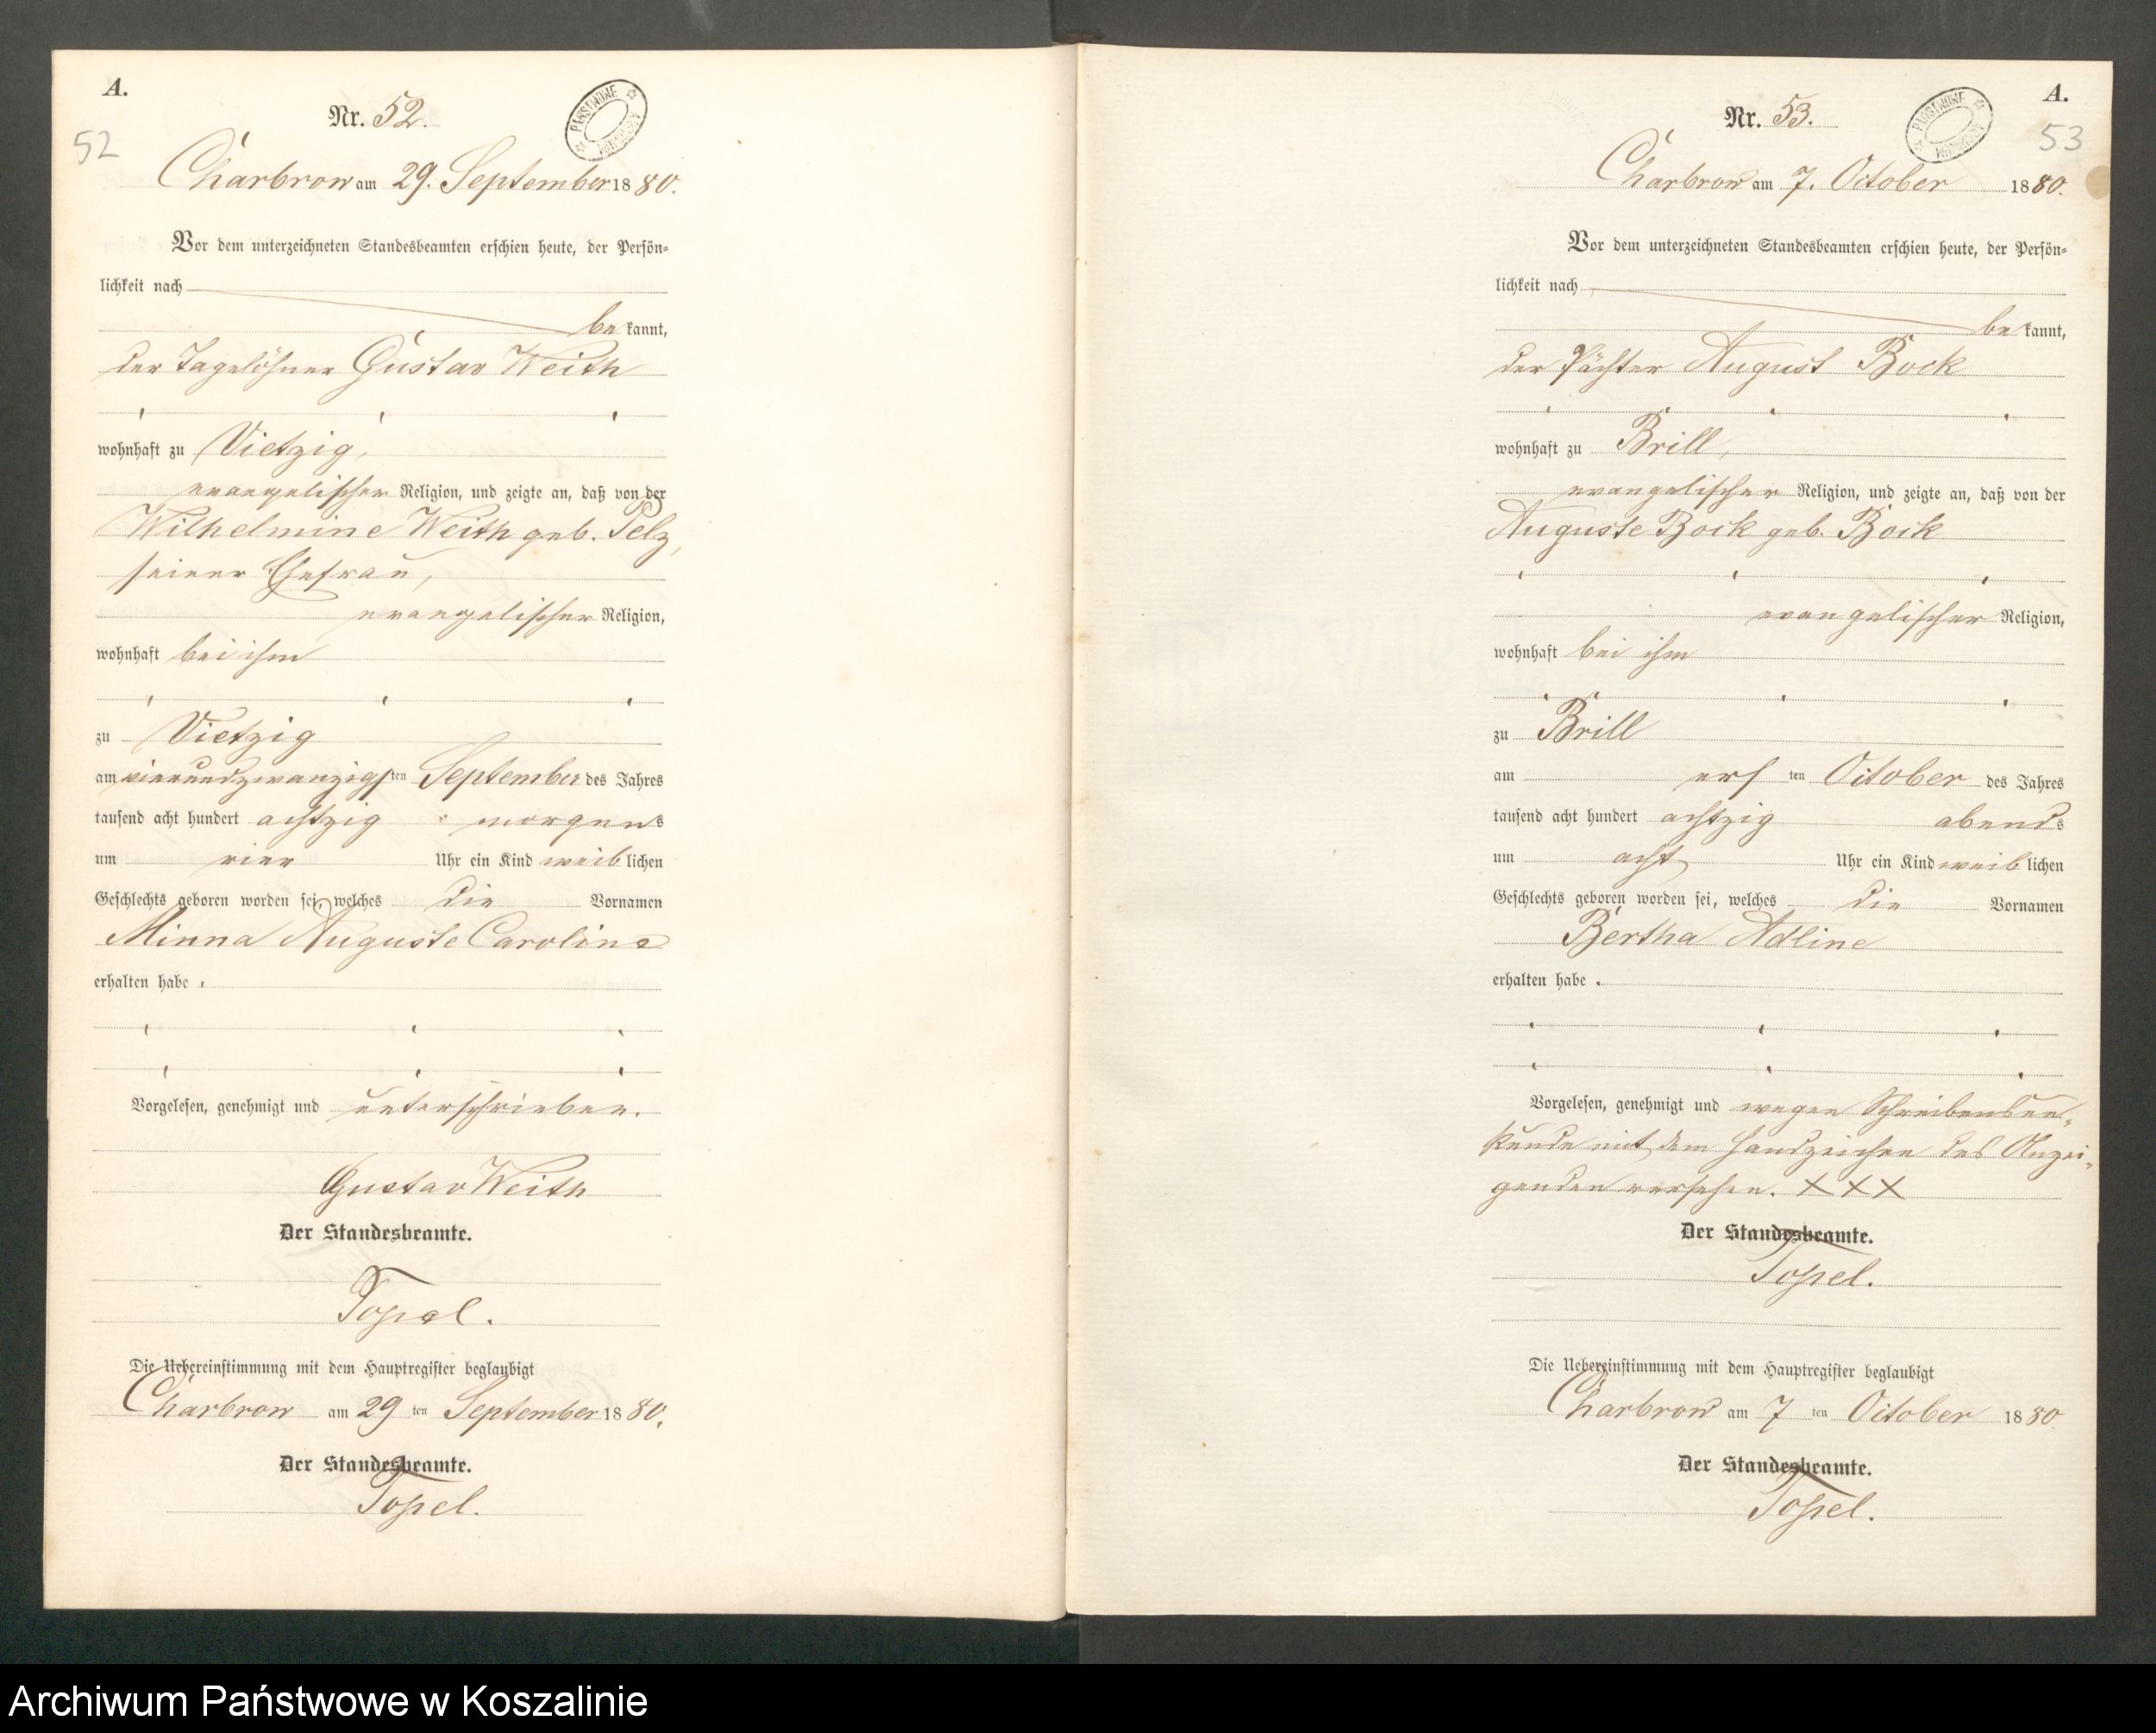 A.
Nr. 52.
52
PAŃSTWOWE
Charbrow am 29. September 1880.
Vor dem unterzeichneten Standesbeamten erschien heute, der Persön-
lichkeit nach
bekannt,
der Tagelöhner Gustav Weith
wohnhaft zu Vietzig,
evangelischer Religion, und zeigte an, daß von der
Wilhelmine Weith geb. Pelz,
seiner Ehefrau,
evangelischer Religion,
wohnhaft bei ihm
zu Vietzig
am vierundzwanzigsten September des Jahres
tausend acht hundert achtzig morgens
um vier Uhr ein Kind weiblichen
Geschlechts geboren worden sei, welches die Vornamen
Minna Auguste Caroline
erhalten habe.
Vorgelesen, genehmigt und unterschrieben.
Gustav Weith
Der Standesbeamte.
Topel.
Die Uebereinstimmung mit dem Hauptregister beglaubigt
Charbrow am 29ten September 1880.
Der Standesbeamte.
Topel.
A.
Nr. 53.
53
PAŃSTWOWE
Charbrow am 7. October 1880.
Vor dem unterzeichneten Standesbeamten erschien heute, der Persön-
lichkeit nach
bekannt,
der Pächter August Bock
wohnhaft zu Brill,
evangelischer Religion, und zeigte an, daß von der
Auguste Bock geb. Bock
evangelischer Religion,
wohnhaft bei ihm
zu Brill
am ersten October des Jahres
tausend acht hundert achtzig abends
um acht Uhr ein Kind weiblichen
Geschlechts geboren worden sei, welches die Vornamen
Bertha Adline
erhalten habe.
Vorgelesen, genehmigt und wegen Schreibensun-
kunde mit dem Handzeichen des Anzei-
genden versehen. XXX
Der Standesbeamte.
Topel.
Die Uebereinstimmung mit dem Hauptregister beglaubigt
Charbrow am 7ten October 1880.
Der Standesbeamte.
Topel.
Archiwum Państwowe w Koszalinie